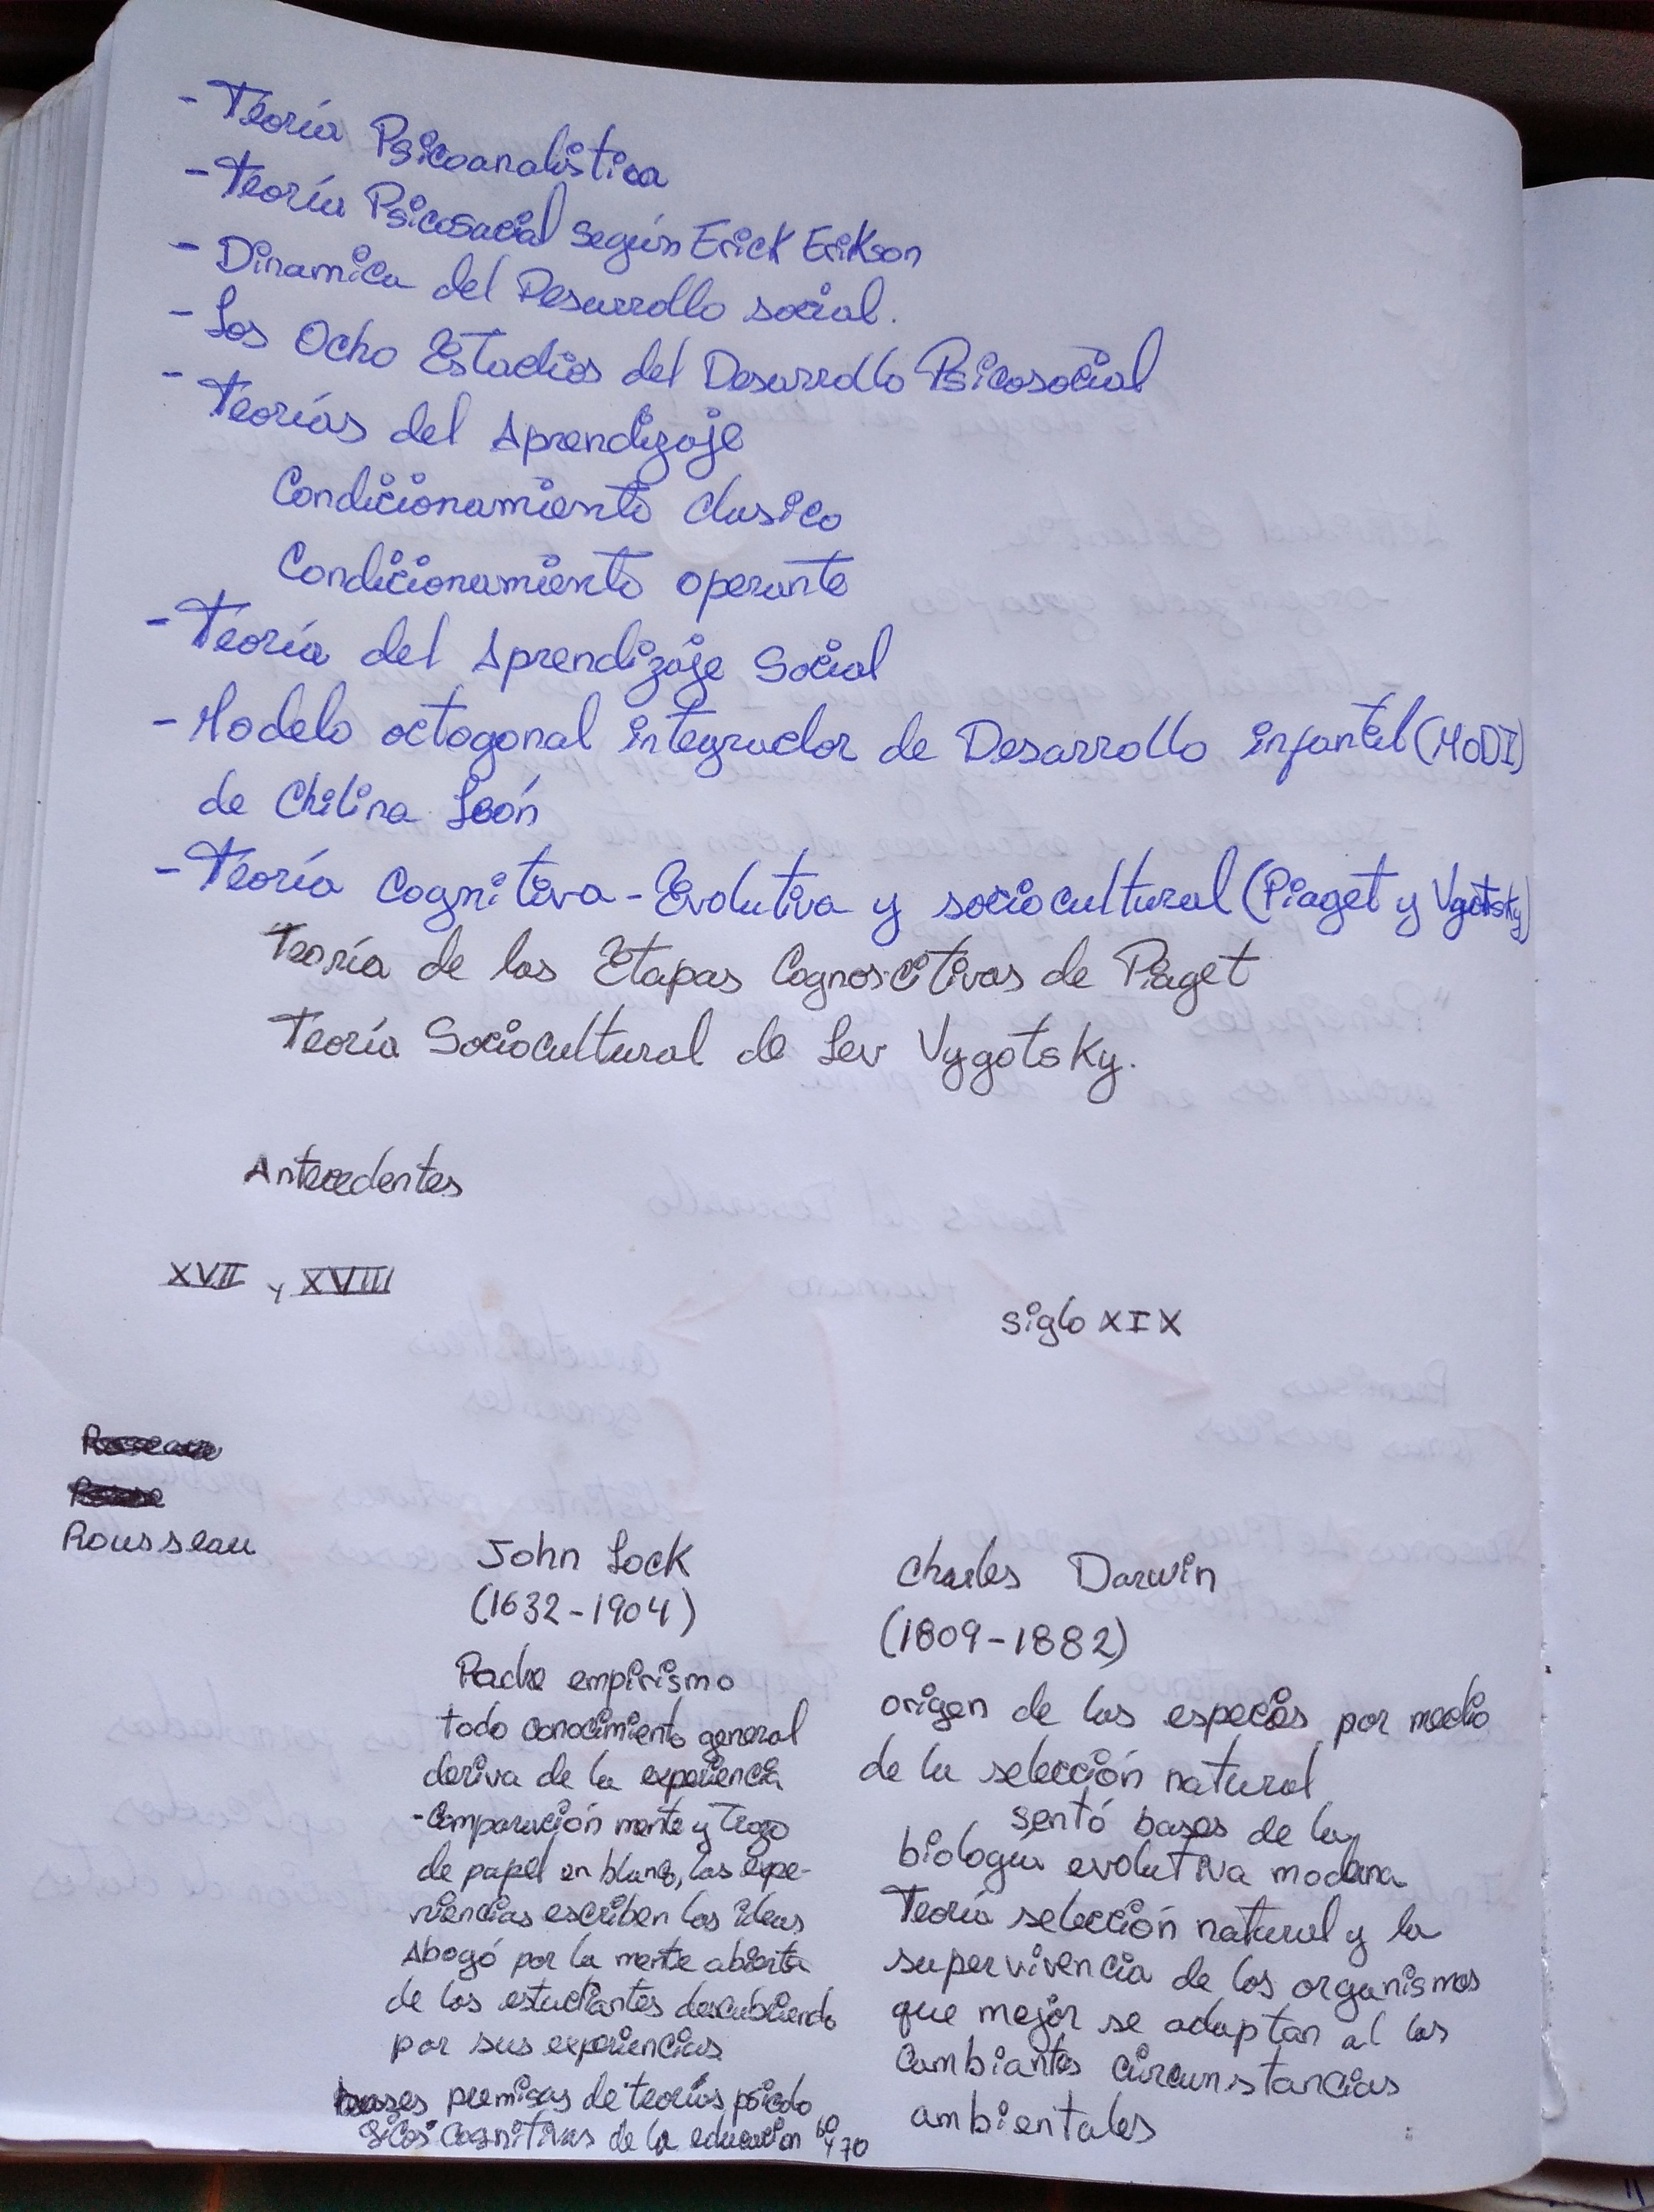 - Teoría Psicoanalística
- Teoría Psicosocial según Erick Erikson
- Dinamica del Desarrollo social.
- Los Ocho Estadios del Desarrollo Psicosocial
- Teorías del Aprendizaje
Condicionamiento clasico
Condicionamiento operante
- Teoría del Aprendizaje Social
- Modelo octogonal integrador de Desarrollo infantil (MODI)
de Chilina León
- Teoría Cognitiva - Evolutiva y sociocultural (Piaget y Vgotsky)
Teoría de las Etapas Cognoscitivas de Piaget
Teoría Sociocultural de Lev Vygotsky.
Antecedentes
XVII y XVIII
siglo XIX
Rousseau
John Lock
(1632-1904)
Padre empirismo
todo conocimiento general
deriva de la experiencia
- Comparación mente y Trozo
de papel en blanco, las expe-
riencias escriben las ideas
Abogó por la mente abierta
de los estudiantes descubriendo
por sus experiencias
bases premisas de teorías psicolo
gicas cognitivas de la educacion 60 y 70
Charles Darwin
(1809-1882)
origen de las especies por medio
de la selección natural
sentó bases de la
biologia evolutiva moderna
Teoría selección natural y la
supervivencia de los organismos
que mejor se adaptan al las
Cambiantes circunstancias
ambientales